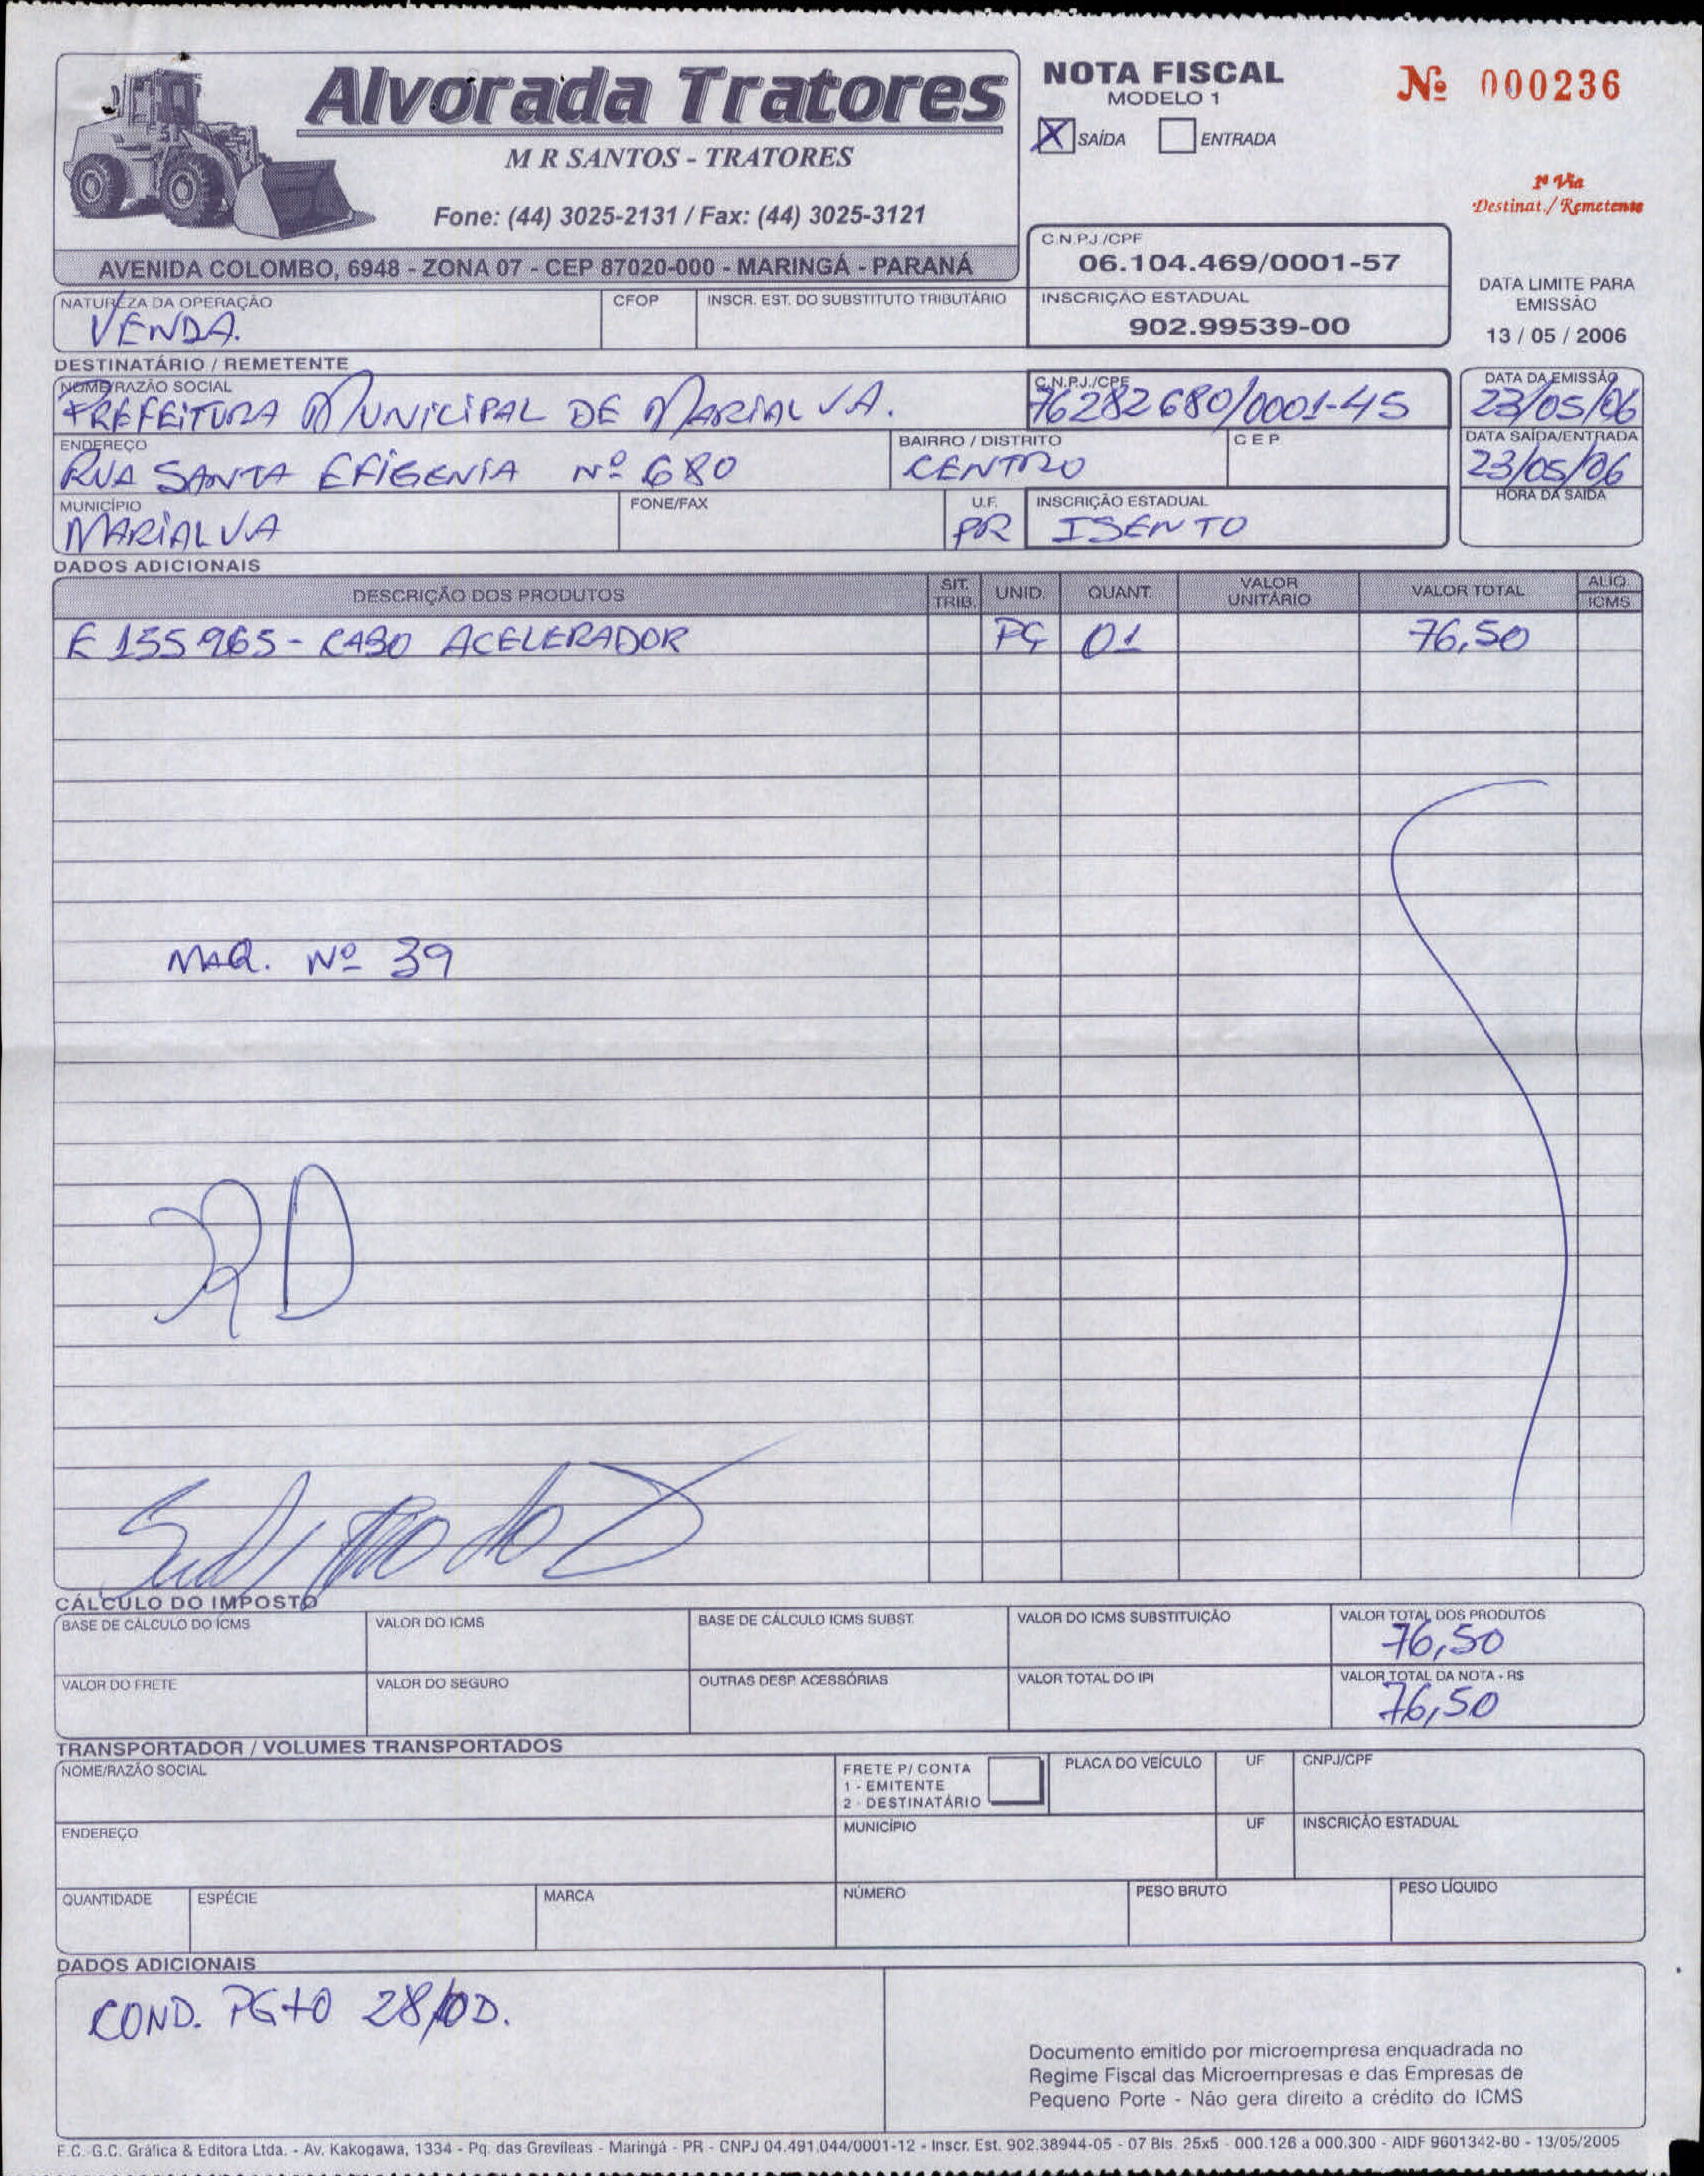 Alvorada Tratores
M R SANTOS - TRATORES
Fone: (44) 3025-2131 / Fax: (44) 3025-3121
AVENIDA COLOMBO, 6948 - ZONA 07 - CEP 87020-000 - MARINGÁ - PARANÁ
NOTA FISCAL
MODELO 1
X SAÍDA ENTRADA
Nº 000236
1ª Via
Destinat./ Remetente
C.N.P.J./CPF
06.104.469/0001-57
INSCRIÇÃO ESTADUAL
902.99539-00
DATA LIMITE PARA
EMISSÃO
13 / 05 / 2006
NATUREZA DA OPERAÇÃO CFOP INSCR. EST. DO SUBSTITUTO TRIBUTÁRIO
VENDA.
DESTINATÁRIO / REMETENTE
NOME/RAZÃO SOCIAL C.N.P.J./CPF DATA DA EMISSÃO
PREFEITURA MUNICIPAL DE MARIALVA. 76282680/0001-45 23/05/06
ENDEREÇO BAIRRO / DISTRITO CEP DATA SAÍDA/ENTRADA
RUA SANTA EFIGENIA Nº 680 CENTRO 23/05/06
MUNICÍPIO FONE/FAX U.F. INSCRIÇÃO ESTADUAL HORA DA SAÍDA
MARIALVA PR ISENTO
DADOS ADICIONAIS
DESCRIÇÃO DOS PRODUTOS SIT. TRIB. UNID. QUANT. VALOR UNITÁRIO VALOR TOTAL ALIQ. ICMS
E 155965 - CABO ACELERADOR PÇ 01 76,50
MAQ. Nº 39
CÁLCULO DO IMPOSTO
BASE DE CÁLCULO DO ICMS VALOR DO ICMS BASE DE CÁLCULO ICMS SUBST. VALOR DO ICMS SUBSTITUIÇÃO VALOR TOTAL DOS PRODUTOS
76,50
VALOR DO FRETE VALOR DO SEGURO OUTRAS DESP. ACESSÓRIAS VALOR TOTAL DO IPI VALOR TOTAL DA NOTA - R$
76,50
TRANSPORTADOR / VOLUMES TRANSPORTADOS
NOME/RAZÃO SOCIAL FRETE P/ CONTA PLACA DO VEÍCULO UF CNPJ/CPF
1 - EMITENTE
2 - DESTINATÁRIO
ENDEREÇO MUNICÍPIO UF INSCRIÇÃO ESTADUAL
QUANTIDADE ESPÉCIE MARCA NÚMERO PESO BRUTO PESO LÍQUIDO
DADOS ADICIONAIS
COND. PGTO 28/DD.
Documento emitido por microempresa enquadrada no
Regime Fiscal das Microempresas e das Empresas de
Pequeno Porte - Não gera direito a crédito do ICMS
F.C. G.C. Gráfica & Editora Ltda. - Av. Kakogawa, 1334 - Pq. das Grevíleas - Maringá - PR - CNPJ 04.491.044/0001-12 - Inscr. Est. 902.38944-05 - 07 Bls. 25x5 - 000.126 a 000.300 - AIDF 9601342-80 - 13/05/2005